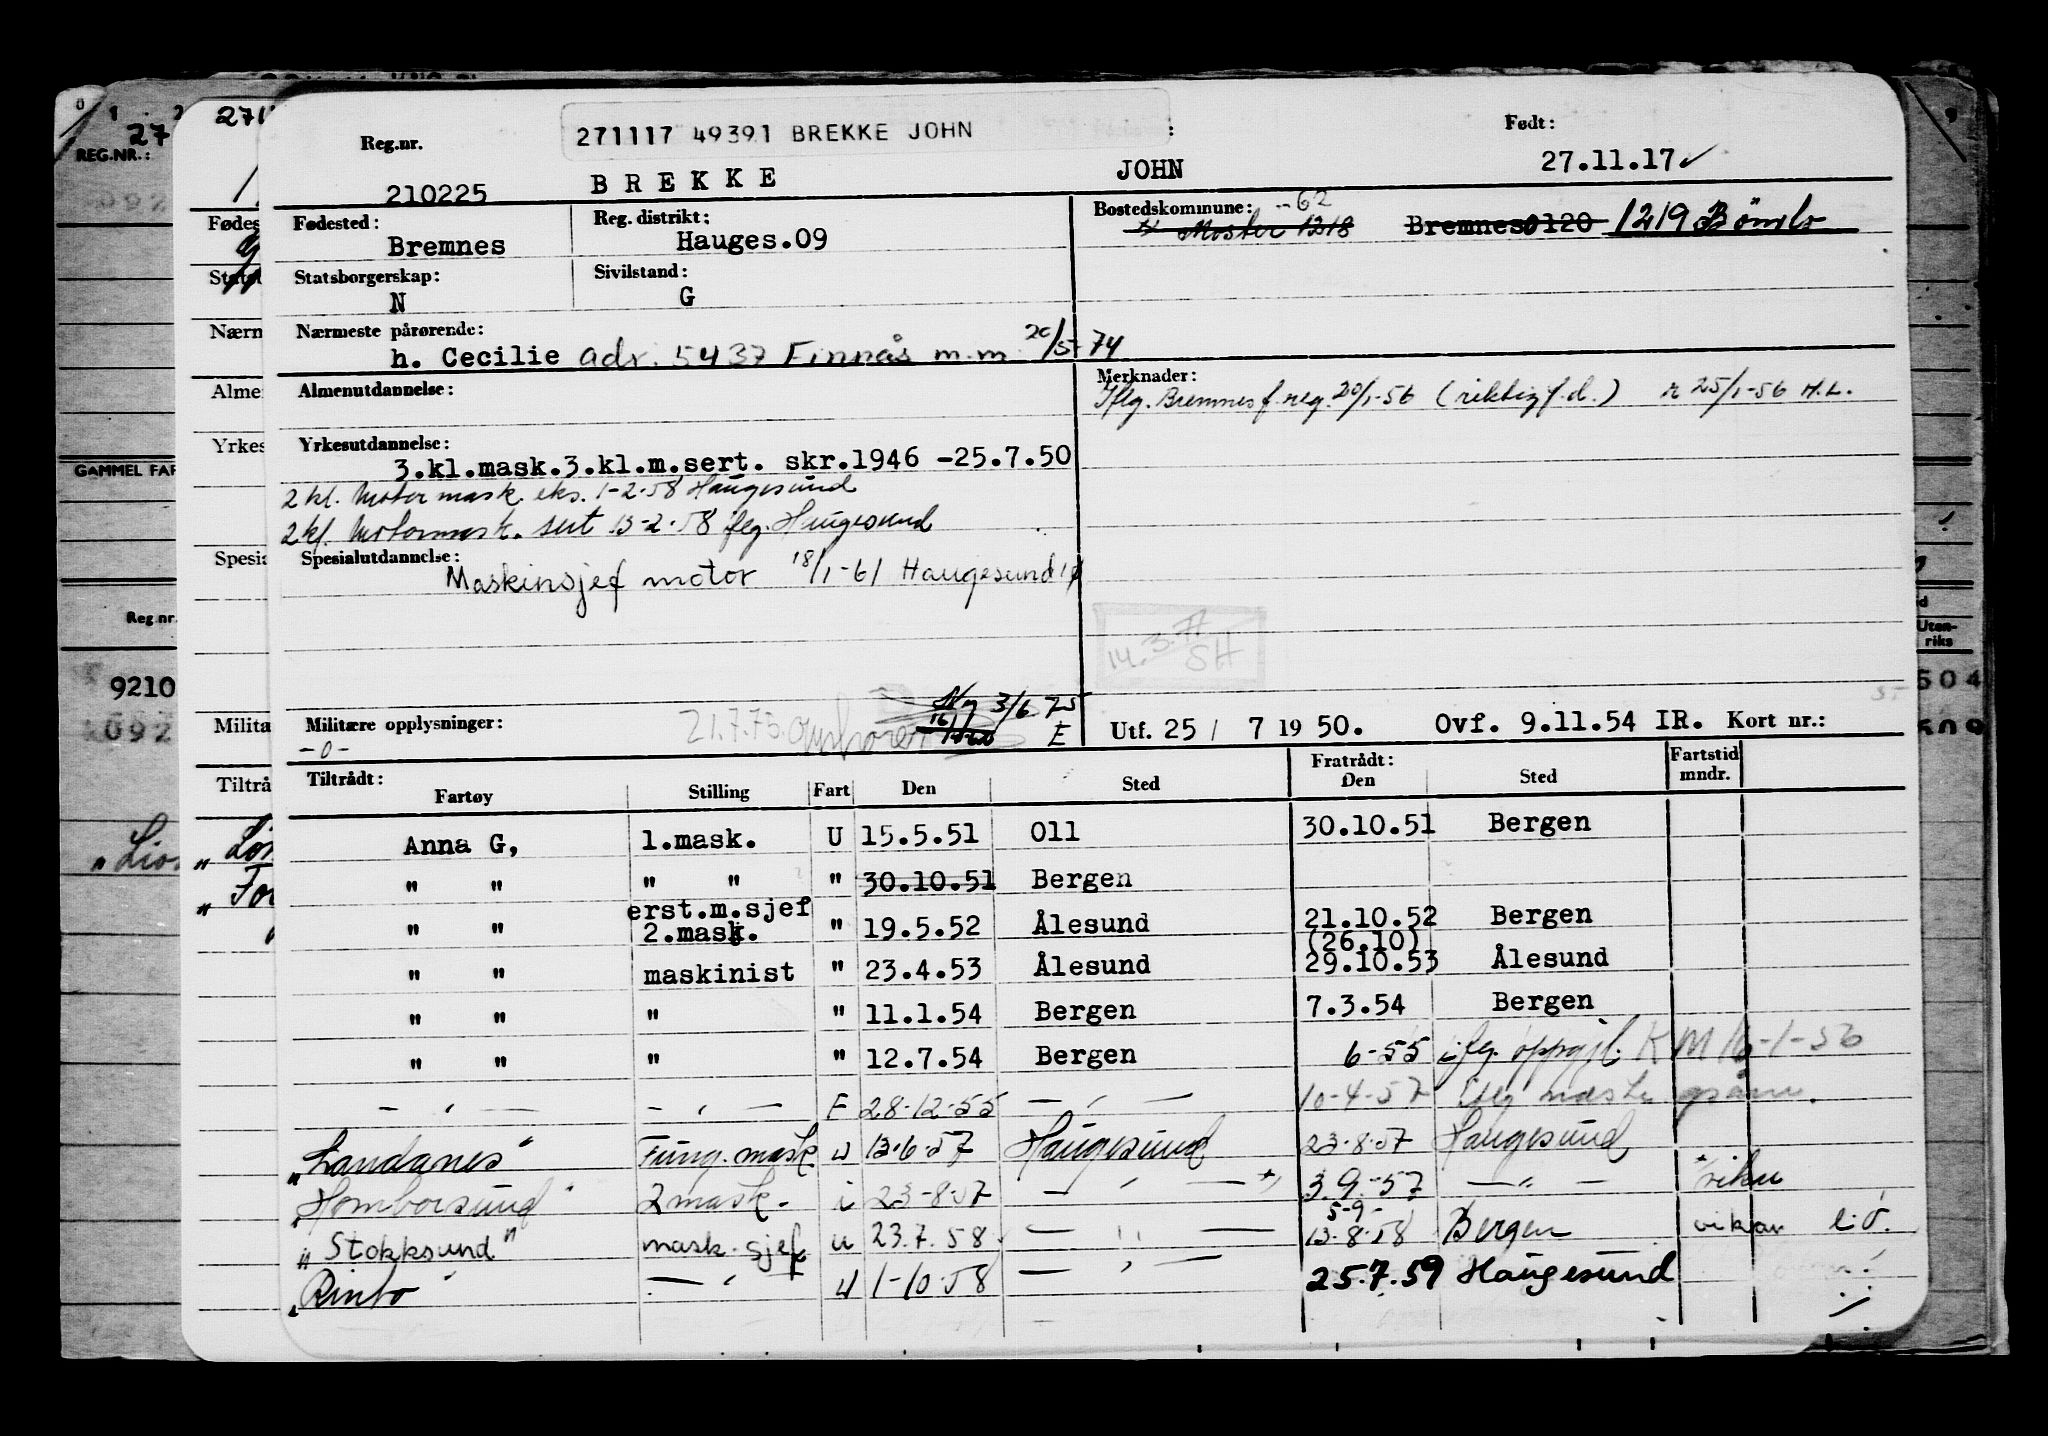 271117 49391 BREKKE JOHN
Reg.nr.
210225
BREKKE
JOHN
Født:
27.11.17 ✓
Fødested: Bremnes
Reg. distrikt: Hauges.09
Bostedskommune: Moster 1218 --62 Bremnes 0120 1219 Bömlo
Statsborgerskap: N
Sivilstand: G
Nærmeste pårørende:
h. Cecilie adr. 5437 Finnås m.m 20/5-74
Almenutdannelse:
Merknader:
Iflg. Bremnes f.reg. 20/1-56 (riktig f.d.) r 25/1-56 H.L.
Yrkesutdannelse:
3.kl.mask.3.kl.m.sert. skr.1946 -25.7.50
2 kl. Motormask. eks. 1-2-58 Haugesund
2 kl. Motormask. sert 13-2-58 flg. Haugesund
Spesialutdannelse:
Maskinsjef motor 18/1-61 Haugesund
14.3.77
SH
Militære opplysninger:
-0-
21.7.73
3/6 75
E
Utf. 25/ 7 19 50. Ovf. 9.11.54 IR. Kort nr.:
Tiltrådt:
Fartøy Stilling Fart Den Sted Fratrådt: Den Sted Fartstid mndr.
Anna G, 1.mask. U 15.5.51 Oll 30.10.51 Bergen
" " " " " 30.10.51 Bergen
" " erst.m.sjef 2.mask. " 19.5.52 Ålesund 21.10.52 Bergen
(26.10)
" " maskinist " 23.4.53 Ålesund 29.10.53 Ålesund
" " " " 11.1.54 Bergen 7.3.54 Bergen
" " " " 12.7.54 Bergen 6-55 iflg. oppgj. KM 16-1-56
— " — — " — F 28-12-55 — " — 10-4-57 iflg
"Landanes" Fung. mask. U 13-6-57 Haugesund 23-8-57 Haugesund
"Homborsund" 2 mask. i 23-8-57 — " — 3.9.-57 — " —
5-9-
"Stokksund" mask. sjef u 23.7.58 — " — 13-8-58 Bergen vikar
"Rinto" — " — U 1-10-58 — " — 25.7.59 Haugesund
REG.NR.:
GAMMEL FAR
Reg.nr.
9210
Uten-
riks
504